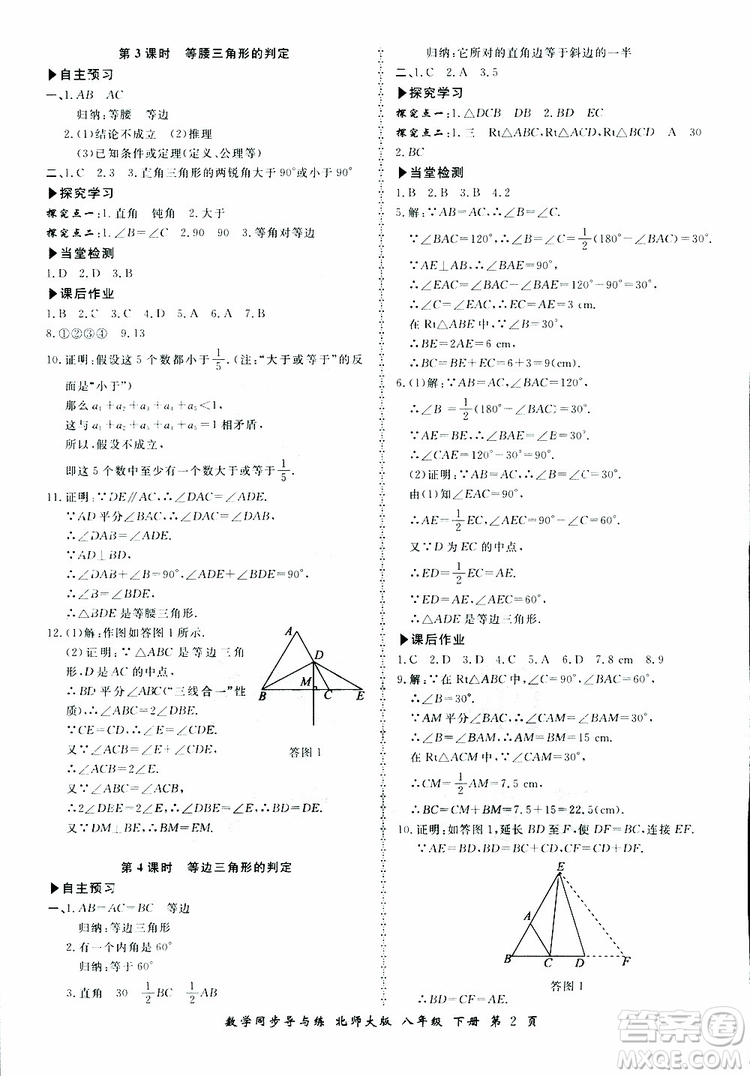 第3课时　等腰三角形的判定
▶自主预习
一、1.AB　AC
归纳：等腰　等边
2.(1)结论不成立　(2)推理
(3)已知条件或定理(定义、公理等)
二、1.C　2.3　3.直角三角形的两锐角大于90°或小于90°
▶探究学习
探究点一：1.直角　钝角　2.大于
探究点二：1.∠B=∠C　2.90　90　3.等角对等边
▶当堂检测
1.D　2.D　3.B
▶课后作业
1.B　2.C
8.①②③④　9.13
10.证明：假设这5个数都小于1/5.(注：“大于或等于”的反
面是“小于”)
那么a₁+a₂+a₃+a₄+a₅<1,
这与a₁+a₂+a₃+a₄+a₅=1相矛盾,
所以,假设不成立.
即这5个数中至少有一个数大于或等于1/5.
11.证明：∵DE∥AC,∴∠DAC=∠ADE.
∵AD平分∠BAC,∴∠DAC=∠DAB.
∴∠DAB=∠ADE.
∵AD⊥BD,
∴∠DAB+∠B=90°,∠ADE+∠BDE=90°.
∴∠B=∠BDE.
∴△BDE是等腰三角形.
12.(1)解：作图如答图1所示.
(2)证明：∵△ABC是等边三角
形,D是AC的中点,
∴BD平分∠ABC(“三线合一”性
质).
∴∠ABC=2∠DBE.
∵CE=CD,∴∠CDE=∠E.
又∵∠ACB=∠CDE+∠E,
∴∠ACB=2∠E.
又∵∠ABC=∠ACB,
∴2∠DBE=2∠E.∴∠DBE=∠E.∴BD=DE.
又∵DM⊥BE,∴BM=EM.
A
D
M
B
C
E
答图1
第4课时　等边三角形的判定
▶自主预习
一、1.AB=AC=BC　等边
归纳：等边三角形
2.有一个内角是60°
归纳：等于60°
3.直角　30　1/2　BC　1/2　BC
归纳：它所对的直角边等于斜边的一半
二、1.C　2.A　3.5
▶探究学习
探究点一：1.∠DCB　BD　EC
探究点二：1.三　Rt△ABC　Rt△BCD　A　30
2.BC
▶当堂检测
1.B　2.B　3.B　4.2
5.解：∵AB=AC,∴∠B=∠C.
∵∠BAC=120°,∴∠C=1/2(180°-∠BAC)=30°.
∵AE⊥AB,∴∠BAE=90°.
∴∠CAE=∠BAC-∠BAE=30°.
∴∠CAE=∠C.∴AE=CE=3 cm.
在Rt△ABE中,∵∠B=30°,
∴BE=2AE=6 cm.
∴BC=BE+EC=6+3=9(cm).
6.(1)解：∵AB=AC,∠BAC=120°,
∴∠B=1/2(180°-∠BAC)=30°.
∴∠CAE=120°-30°=90°.
(2)证明：∵∠CAE=90°,
由(1)知∠C=∠B=30°,
∴AE=1/2EC,∠AEC=90°-30°=60°.
又∵D为EC的中点,
∴ED=1/2EC=AE.
∴△ADE是等边三角形.
▶课后作业
1.C　2.C　3.C　4.C　5.D　6.60　7.8 cm　8.9
9.解：∵在Rt△ABC中,∠C=90°,∠BAC=60°,
∴∠B=30°.
∵AM平分∠BAC,∴∠CAM=∠BAM=30°.
∴∠B=∠BAM.∴AM=BM=15 cm.
在Rt△ACM中,∵∠CAM=30°,
∴CM=1/2AM=7.5 cm.
∴BC=CM+BM=7.5+15=22.5(cm).
10.证明：如答图1,延长BD至F,使DF=BC,连接EF.
∵△ABC是等边三角形,
∴AB=BC=AC,∠B=60°.
E
A
B
C
D
F
答图1
∵BD=CD+BC,CF=CD+DF,
∴BD=CF.
数学同步导与练　北师大版　八年级　下册　第2页
答案圈
MXQE.COM